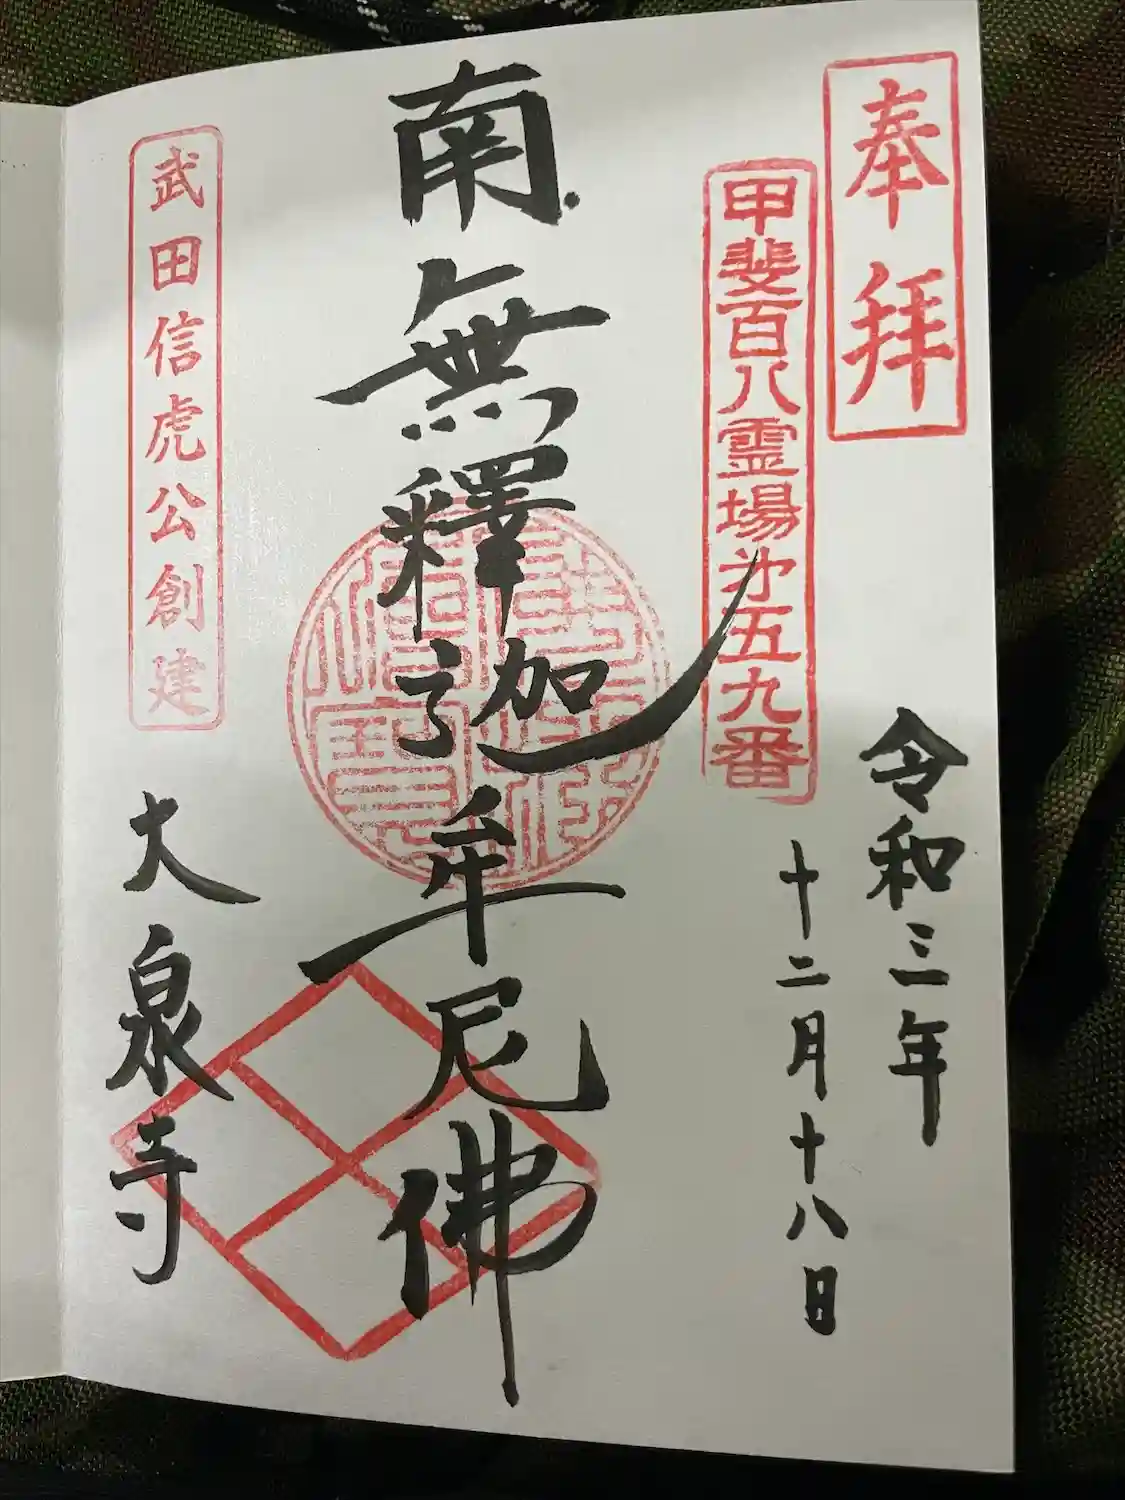 奉拝
甲斐百八霊場第五九番
令和三年
十二月十八日
南無釋迦牟尼佛
武田信虎公創建
大泉寺